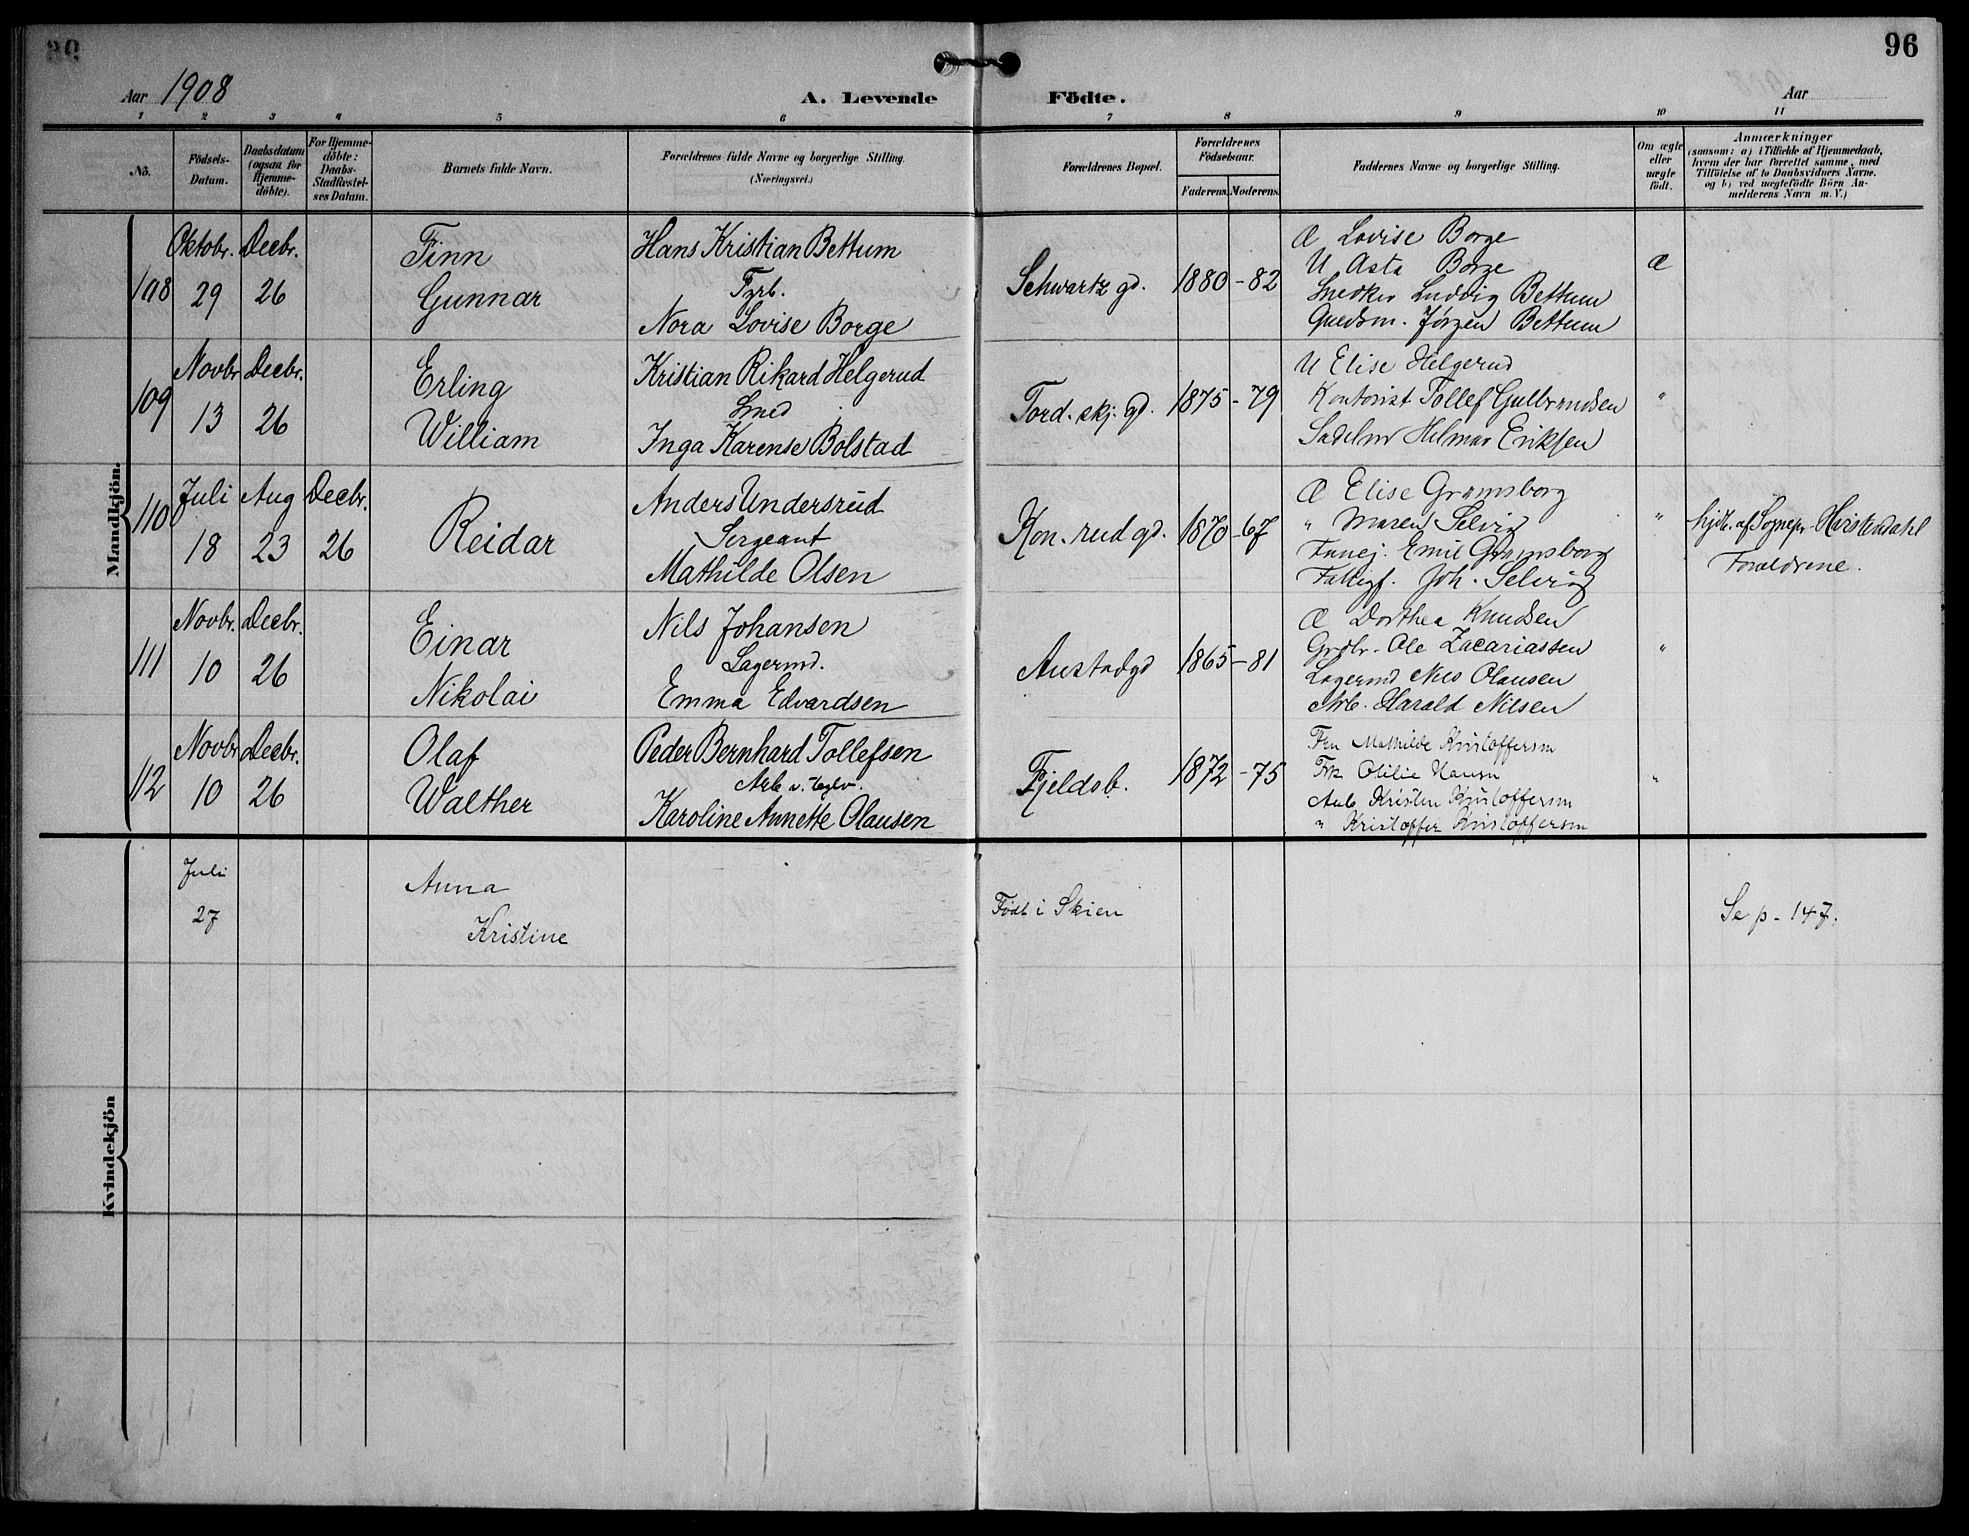 96
Aar 1908
A. Levende Födte.
Aar
1 2 3 4 5 6 7 8 9 10 11
No.
Födsels-Datum.
Daabsdatum (ogsaa for Hjemme-döbte).
For Hjemme-döbte: Daabs-Stadfæstel-ses Datum.
Barnets fulde Navn.
Forældrenes fulde Navne og borgerlige Stilling.
(Næringsvei.)
Forældrenes Bopæl.
Forældrenes Födselsaar.
Faderens. Moderens.
Faddernes Navne og borgerlige Stilling.
Om ægte eller uægte födt.
Anmærkninger
(saasom: a) i Tilfælde af Hjemmedaab, hvem der har forrettet samme, med Tilföielse af to Daabsvidners Navne, og b) ved uægtefödte Börn An-melderens Navn m. V.)
Mandkjön.
108
Oktobr. 29
Decbr. 26
Finn
Gunnar
Hans Kristian Bettum
Fyrb.
Nora Lovise Borge
Schwartz gd.
1880 - 82
Æ Lovise Borge
U Asta Borge
Snedker Ludvig Bettum
Jørgen Bettum
Æ
109
Novbr 13
Decbr. 26
Erling
William
Kristian Rikard Helgerud
Smed
Inga Karense Bolstad
Tord. skj. gd.
1875 - 79
U Elise Helgerud
Kontorist Tollef Gulbrandsen
Sadelm Helmar Eriksen
"
110
Juli 18
Aug 23
Decbr. 26
Reidar
Anders Undersrud
Sergeant
Mathilde Olsen
Kon. rud gd.
1870 - 67
Æ Elise Gramsborg
" Maren Selvig
Emil Gramsborg
Joh. Selvig
"
hjdb. af Sognepr. Hvistendahl
Forældrene.
111
Novbr. 10
Decbr. 26
Einar
Nikolai
Nils Johansen
Lagermd.
Emma Edvardsen
Austadgd
1865 - 81
Æ Dorthea Knudsen
Grdbr. Ole Zacariassen
Lagermd Nils Olausen
Arb. Harald Nilsen
"
112
Novbr 10
Decbr. 26
Olaf
Walther
Peder Bernhard Tollefsen
Arb v. teglv.
Karoline Annette Olausen
Fjeldsb.
1872 - 75
Fru Mathilde Kristoffersen
Frk Otilie Hansen
Arb Kristen Kristoffersen
" Kristoffer Kristoffersen
"
Kvindekjön
Juli 27
Anna
Kristine
Födt i Skien
Se p. 147.